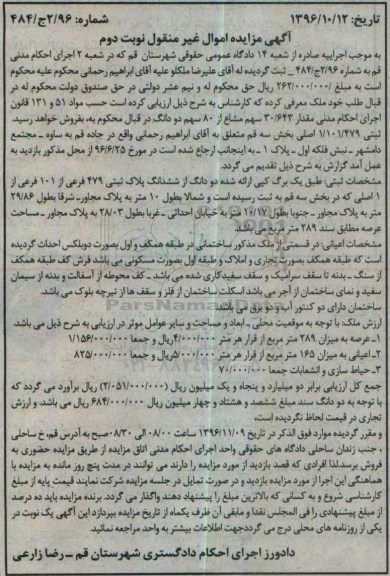 تاریخ: ۱۳۹۶/۱۰/۱۲
شماره: ۲/۹۶ج/۴۸۴
آگهی مزایده اموال غیر منقول نوبت دوم
به موجب اجراییه صادره از شعبه ۱۴ دادگاه عمومی حقوقی شهرستان قم که در شعبه ۲ اجرای احکام مدنی
قم به شماره ۲/۹۶ج/۴۸۴ _ ثبت گردیده له آقای علیرضا ملکلو علیه آقای ابراهیم رحمانی محکوم علیه محکوم
است به مبلغ /۲۶۲/۰۰۰/۰۰۰ ریال حق محکوم له و نیم عشر دولتی در حق صندوق دولت محکوم له در
قبال طلب خود ملک معرفی کرده که کارشناس به شرح ذیل ارزیابی کرده است حسب مواد ۵۱ و ۱۳۱ قانون
اجرای احکام مدنی مقدار ۳۰/۶۴۳ سهم مشاع از ۸۰ سهم دو دانگ در قبال محکوم به، بفروش خواهد رسید.
ثبتی ۱/۱۰۱/۴۷۹ اصلی بخش سه قم متعلق به آقای ابراهیم رحمانی واقع در جاده قم به ساوه _ مجتمع
دامشهر _ نبش فلکه اول _ پلاک ۱ _ به اینجانب ارجاع شده است در مورخ ۹۶/۶/۲۵ از محل مذکور بازدید به
عمل آمد گزارش به شرح ذیل تقدیم می گردد.
مشخصات ثبتی: طبق یک برگ کپی ارائه شده دو دانگ از ششدانگ پلاک ثبتی ۴۷۹ فرعی از ۱۰۱ فرعی از
۱ اصلی که در بخش سه قم به ثبت رسیده است و شمالا بطول ۱۰ متر به پلاک مجاور_ شرقا بطول ۲۹/۸۶
متر به پلاک مجاور _ جنوبا بطول ۱۰/۱۷ متر به خیابان احداثی _ غربا بطول ۲۸/۰۳ به پلاک مجاور _ مساحت
عرصه مطابق سند ۲۸۹ متر مربع می باشد.
مشخصات اعیانی: در قسمتی از ملک مذکور ساختمانی در طبقه همکف و اول بصورت دوبلکس احداث گردیده
است که طبقه همکف بصورت تجاری و املاک و طبقه اول بصورت مسکونی می باشد فرش کف طبقه همکف
از سنگ _ بدنه تا سقف سرامیک و سقف سفیدکاری شده می باشد _ کف محوطه از آسفالت و بدنه از سیمان
سفید و نمای ساختمان از آجر می باشد اسکلت ساختمان از فلز و سقف ها از تیرچه بلوک می باشد.
ساختمان دارای دو کنتور آب و دو برق می باشد.
ارزش ملک: با توجه به موقعیت محلی _ ابعاد و مساحت و سایر عوامل موثر در ارزیابی به شرح ذیل می باشد
۱_عرصه به میزان ۲۸۹ متر مربع از قرار هر متر ۴/۰۰۰/۰۰۰ریال و جمعا ۱/۱۵۶/۰۰۰/۰۰۰
۲_اعیانی به میزان ۱۶۵ متر مربع از قرار هر متر ۵/۰۰۰/۰۰۰ریال و جمعا ۸۲۵/۰۰۰/۰۰۰
۳_ حیاط سازی و انشعابات جمعا ۷۰/۰۰۰/۰۰۰
جمع کل ارزیابی برابر دو میلیارد و پنجاه و یک میلیون ریال (۲/۰۵۱/۰۰۰/۰۰۰) ریال برآورد می گردد که
با توجه به دو دانگ سند مبلغ ششصد و هشتاد و چهار میلیون ریال ۶۸۴/۰۰۰/۰۰۰ ریال می باشد. و ارزش
تجاری در قیمت لحاظ نگردیده است.
و مقرر گردیده موارد فوق الذکر در تاریخ ۱۳۹۶/۱۱/۰۹ ساعت ۰۸/۰۰ الی ۰۸/۳۰صبح به آدرس قم، خ ساحلی
، جنب زندان ساحلی دادگاه های حقوقی واحد اجرای احکام مدنی اتاق مزایده از طریق مزایده حضوری به
فروش برسد.لذا افرادی که قصد بازدید از مورد مزایده را دارند می توانند در مدت پنج روز مانده به مزایده با
هماهنگی این اجرا از مورد مزایده بازدید و در صورت تمایل در جلسه مزایده شرکت نمایند قیمت پایه از مبلغ
کارشناسی شروع و به کسانی که بالاترین مبلغ را پیشنهاد دهند واگذار می گردد. برنده مزایده باید ده درصد
از مبلغ پیشنهادی را فی المجلس نقدا و مابقی آن ظرف یکماه از تاریخ مزایده بپردازد این آگهی یک نوبت در
یکی از روزنامه های محلی درج می گرددجهت اطلاعات بیشتر به واحد مراجعه نمائید.
دادورز اجرای احکام دادگستری شهرستان قم _ رضا زارعی